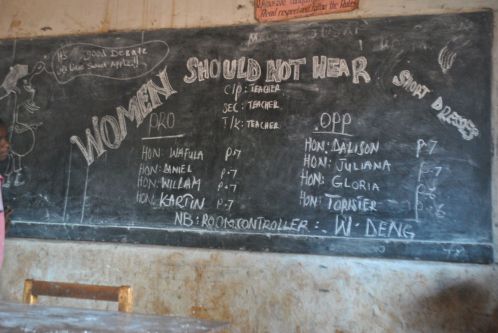 Read respect and follow the Rules
It's a good Debate
WOMEN SHOULD NOT WEAR SHORT DRESSES
C/P: TEACHER
SEC: TEACHER
T/K: TEACHER
PRO
HON: WAFULA P.7
HON: DANIEL P.7
HON: WILLIAM P.7
HON: KARTIN P.7
OPP
HON: DALISON P.7
HON: JULIANA P.7
HON: GLORIA P.7
HON: TORISTER P.6
NB: ROOM CONTROLLER: W. DENG